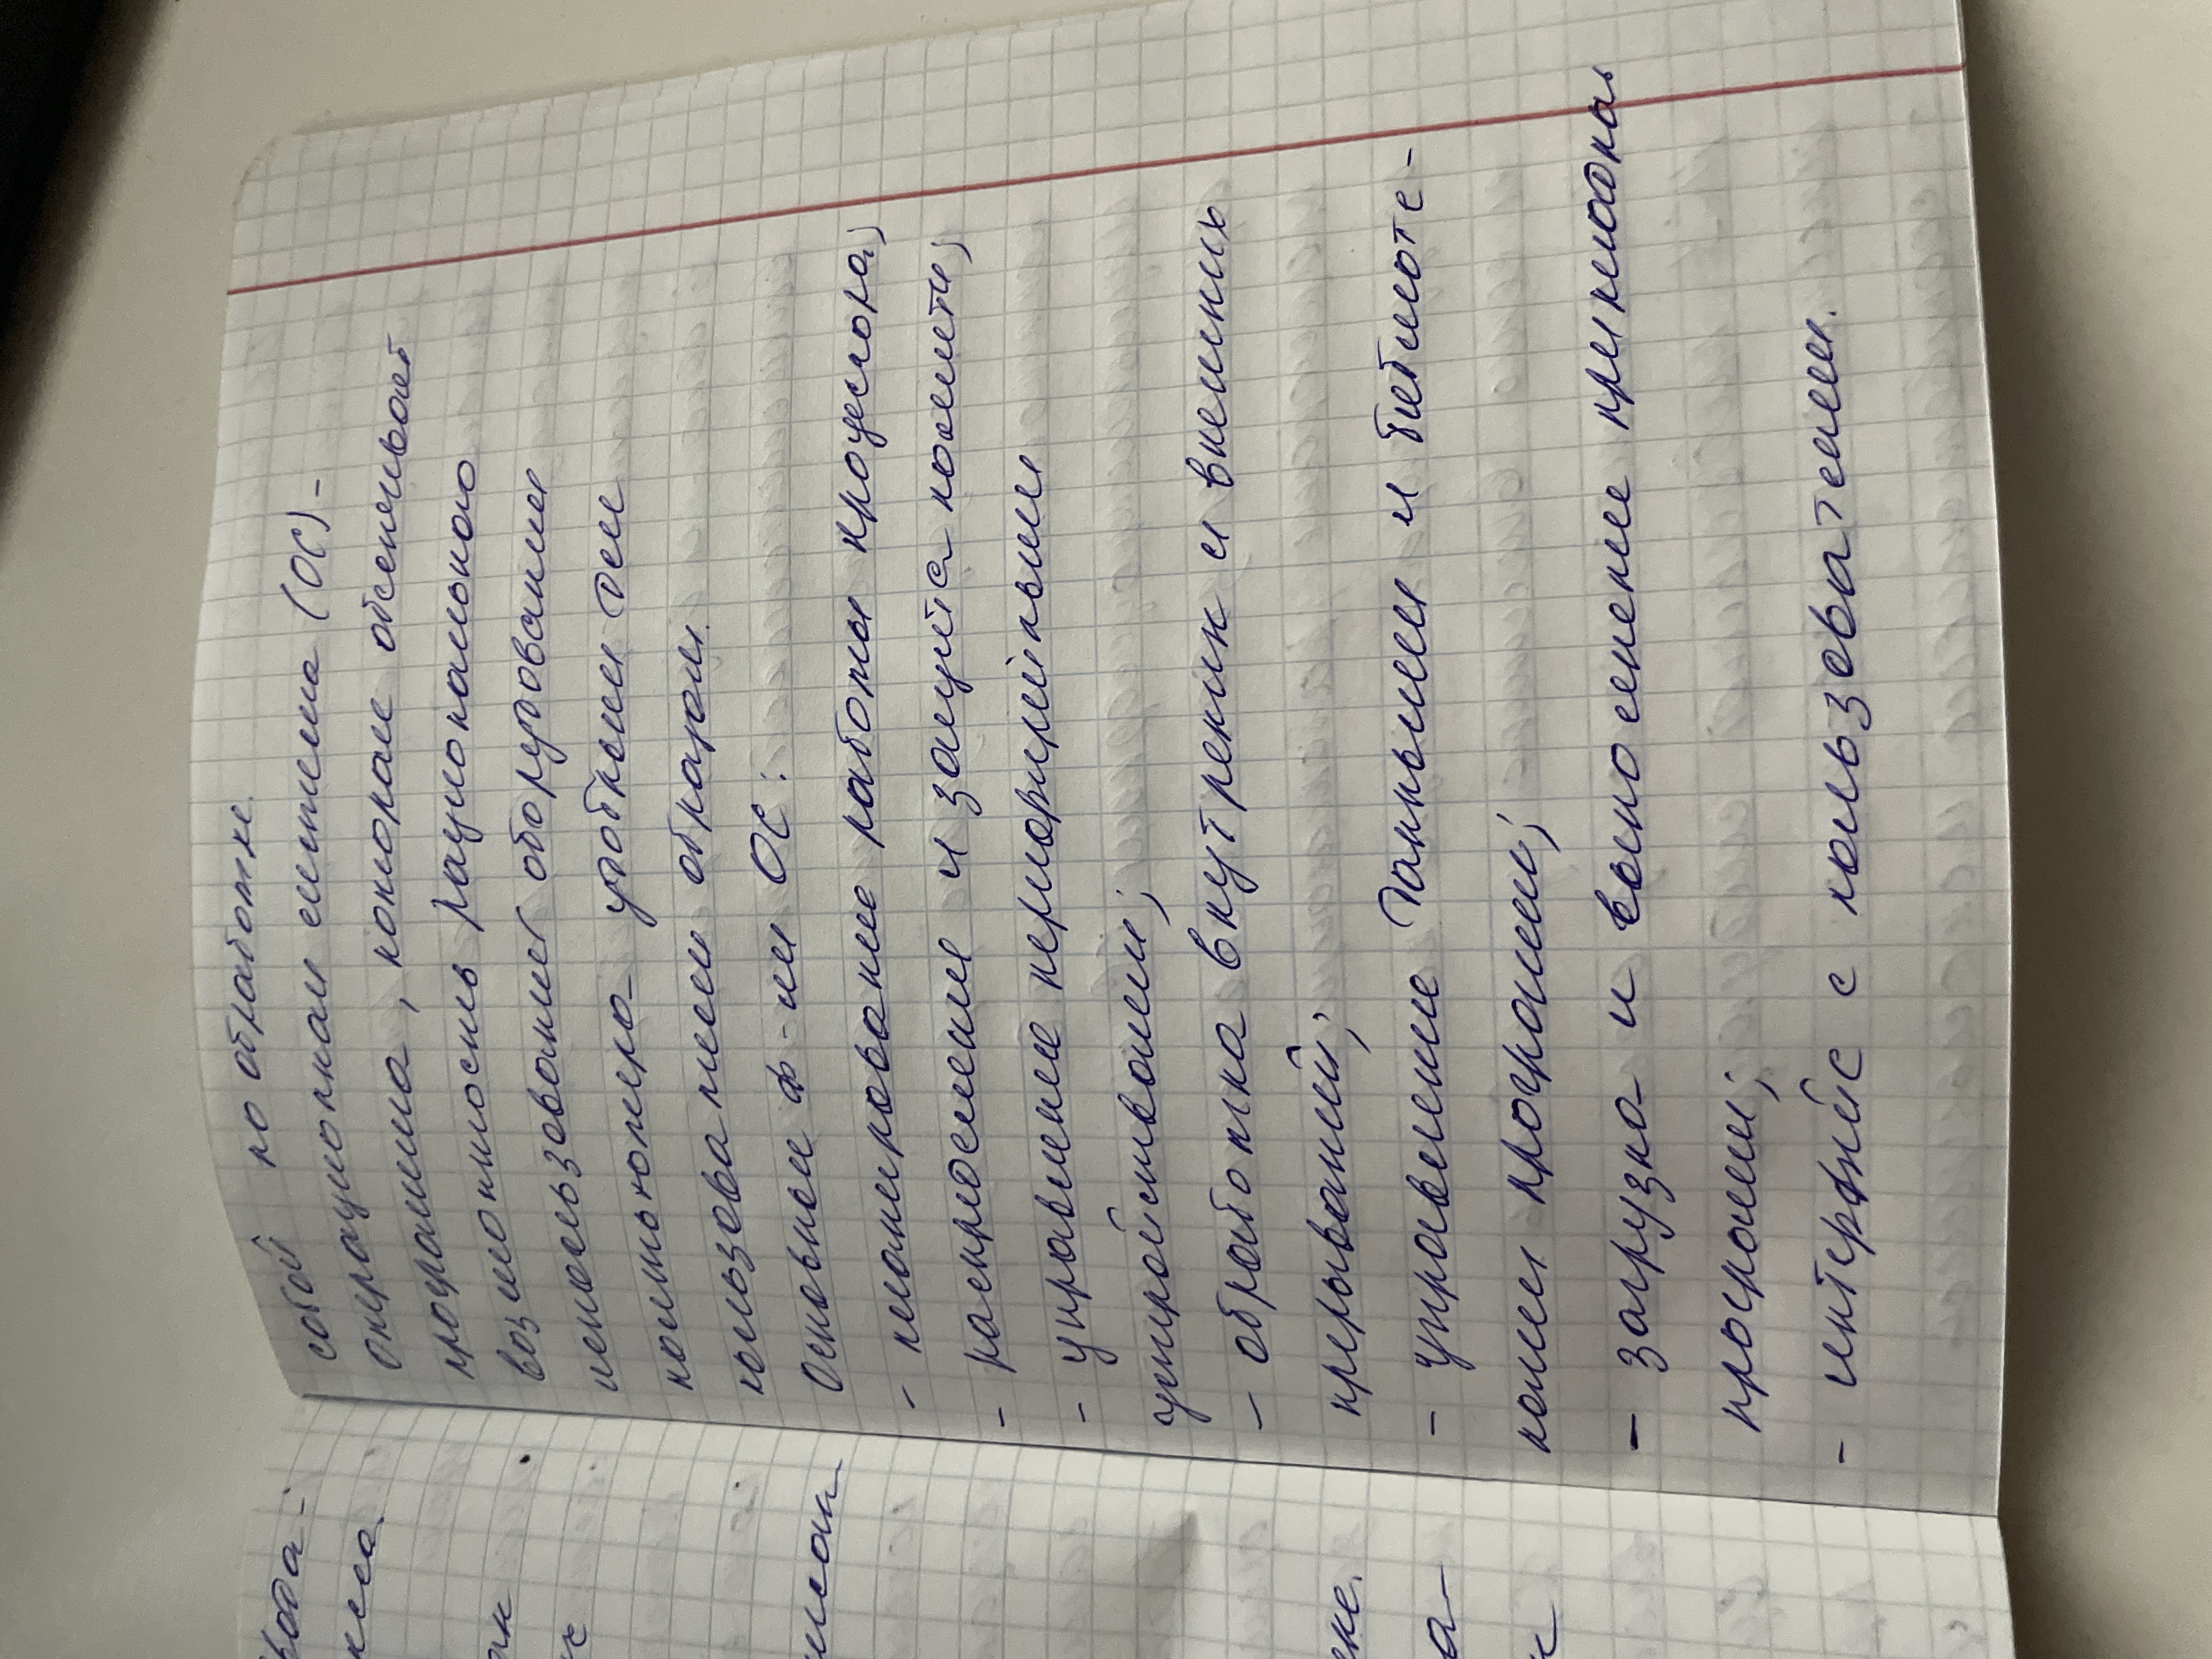 собой по обработке.
операционная система (ОС) -
программа, которая обеспечивает
возможность рационального
использования оборудования
компьютера удобным для
пользователя образом.
основные ф-ии ОС:
- планирование работы процессора,
- распределение и защита памяти,
- управление периферийными
устройствами;
- обработка внутренних и внешних
прерываний;
- управление данными и библиоте-
ками программ;
- загрузка и выполнение прикладных
программ;
- интерфейс с пользователем.